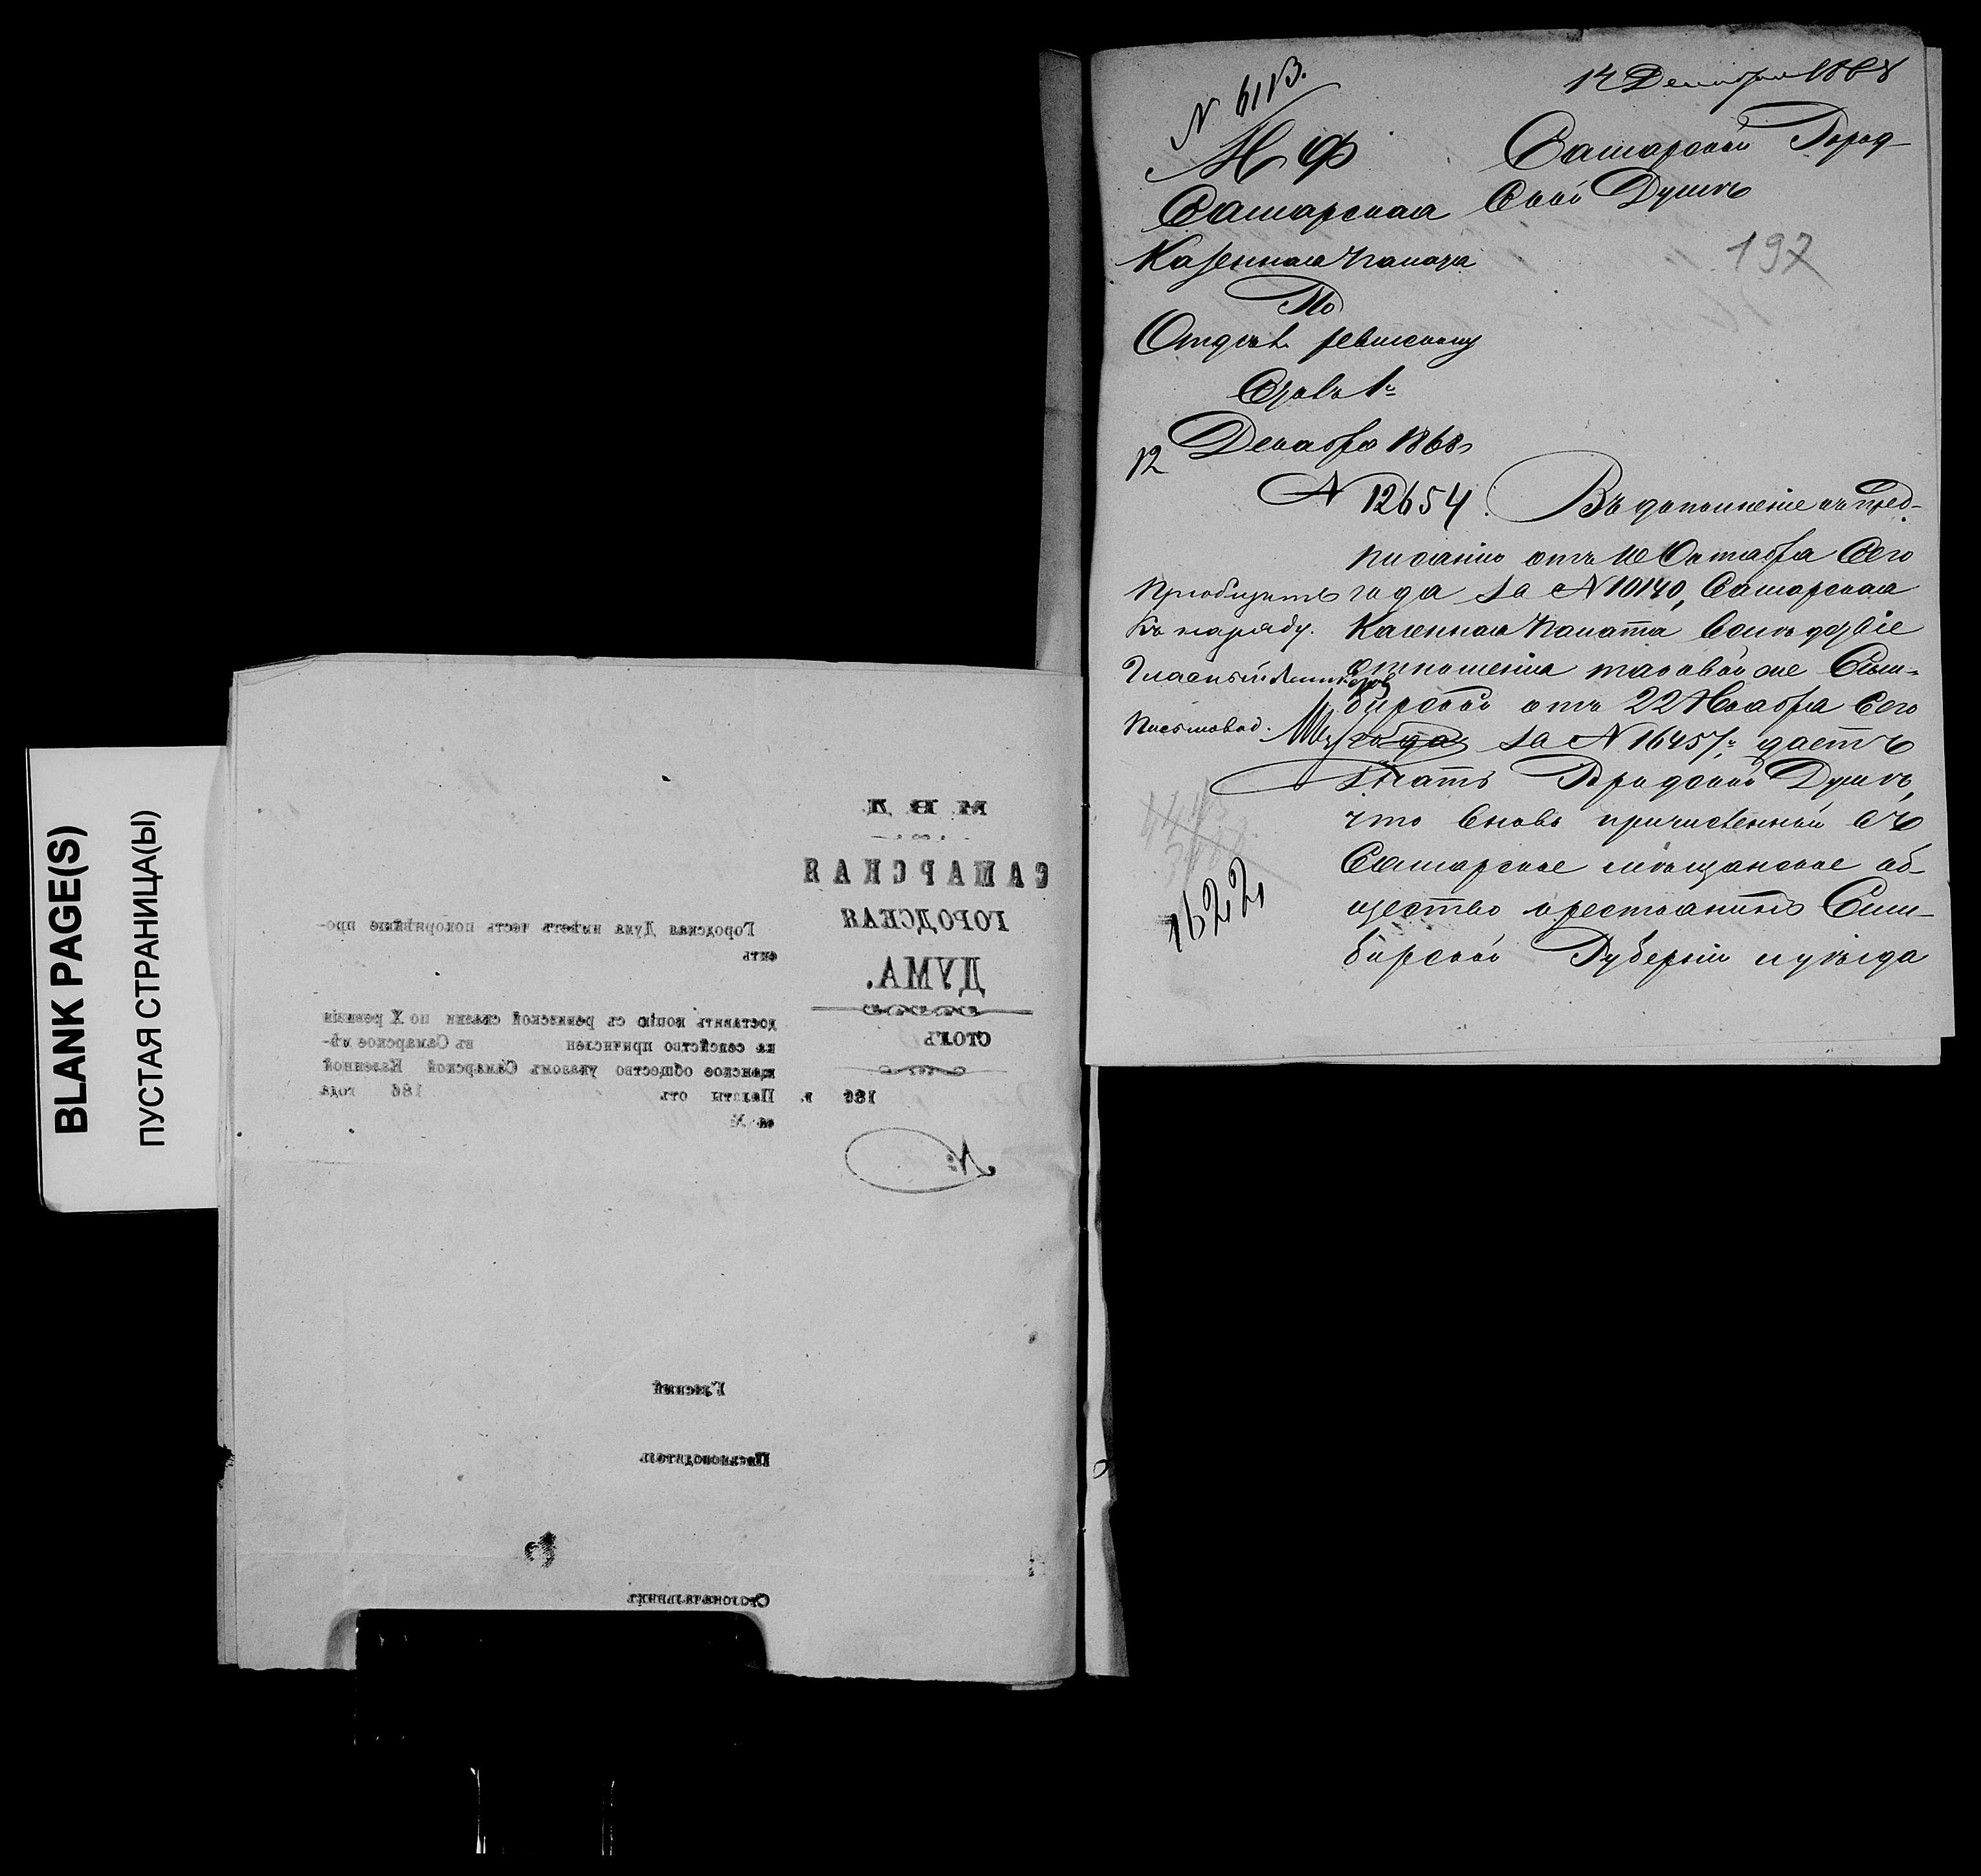 BLANK PAGE(S)
ПУСТАЯ СТРАНИЦА(Ы)
М. В. Д.
САМАРСКАЯ
ГОРОДСКАЯ
ДУМА.
СТОЛЪ
186 г.
№
Городская Дума имѣетъ честь покорнѣйше про-
сить
доставить копію съ ревизской сказки по X ревизіи
на семейство причислен въ Самарское мѣ-
щанское общество указомъ Самарской Казенной
Палаты отъ 186 года
за №
Гласный
Письмоводитель
Столоначальникъ
N 6113.
14 Декабря 1868
М Ф
Самарская
Казенная Палата
По
Отдѣл. ревизскому
Столъ 1й
12 Декабря 1868
N 12654.
Самарской Город-
ской Думѣ
197
Въ дополненіе къ пред-
писанію отъ Октября сего
года за N 10140, Самарская
Казенная Палата вслѣдствіе
отношенія таковой же Сим-
бирской отъ 22 Ноября сего
года за N 16457, даетъ
знать Городской Думѣ,
что вновь причисленный въ
Самарское мѣщанское об-
щество крестьянинъ Сим-
бирской Губерніи и уѣзда
Пріобщить
Къ наряду.
Гласный
Письмовод.
1622